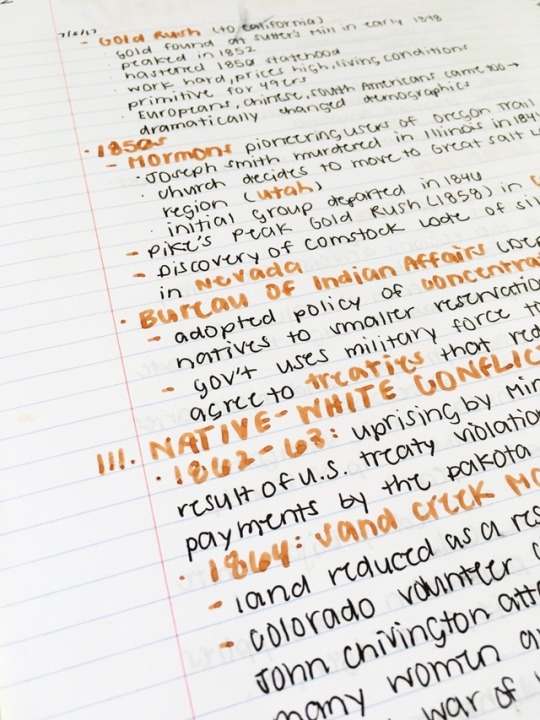 - Gold Rush (to california)
· gold found at Sutter's Mill in early 1848
· peaked in 1852
· hastened 1850 statehood
· work hard, prices high, living conditions
primitive for 49ers
· Europeans, chinese, south Americans came too →
dramatically changed demographics
· 1850s
- Mormons pioneering users of Oregon Trail
· Joseph smith murdered in Illinois in 184
· church decides to move to Great salt L
region (utah)
· initial group departed in 1846
- pike's Peak Gold Rush (1858) in
- Discovery of comstock Lode of sil
in Nevada
· Bureau of Indian Affairs
- adopted policy of concentra
natives to smaller reservation
- gov't uses military force to
agree to treaties that red
III. NATIVE-WHITE CONFLIC
· 1862-63: uprising by Min
result of U.S. treaty violation
payments by the Dakota
· 1864: Sand Creek Ma
- land reduced as a res
- colorado volunteer
John Chivington atta
many women a
war of